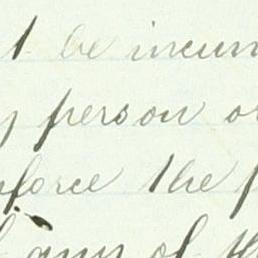 t be incum
y person or
nforce the p
f any of th